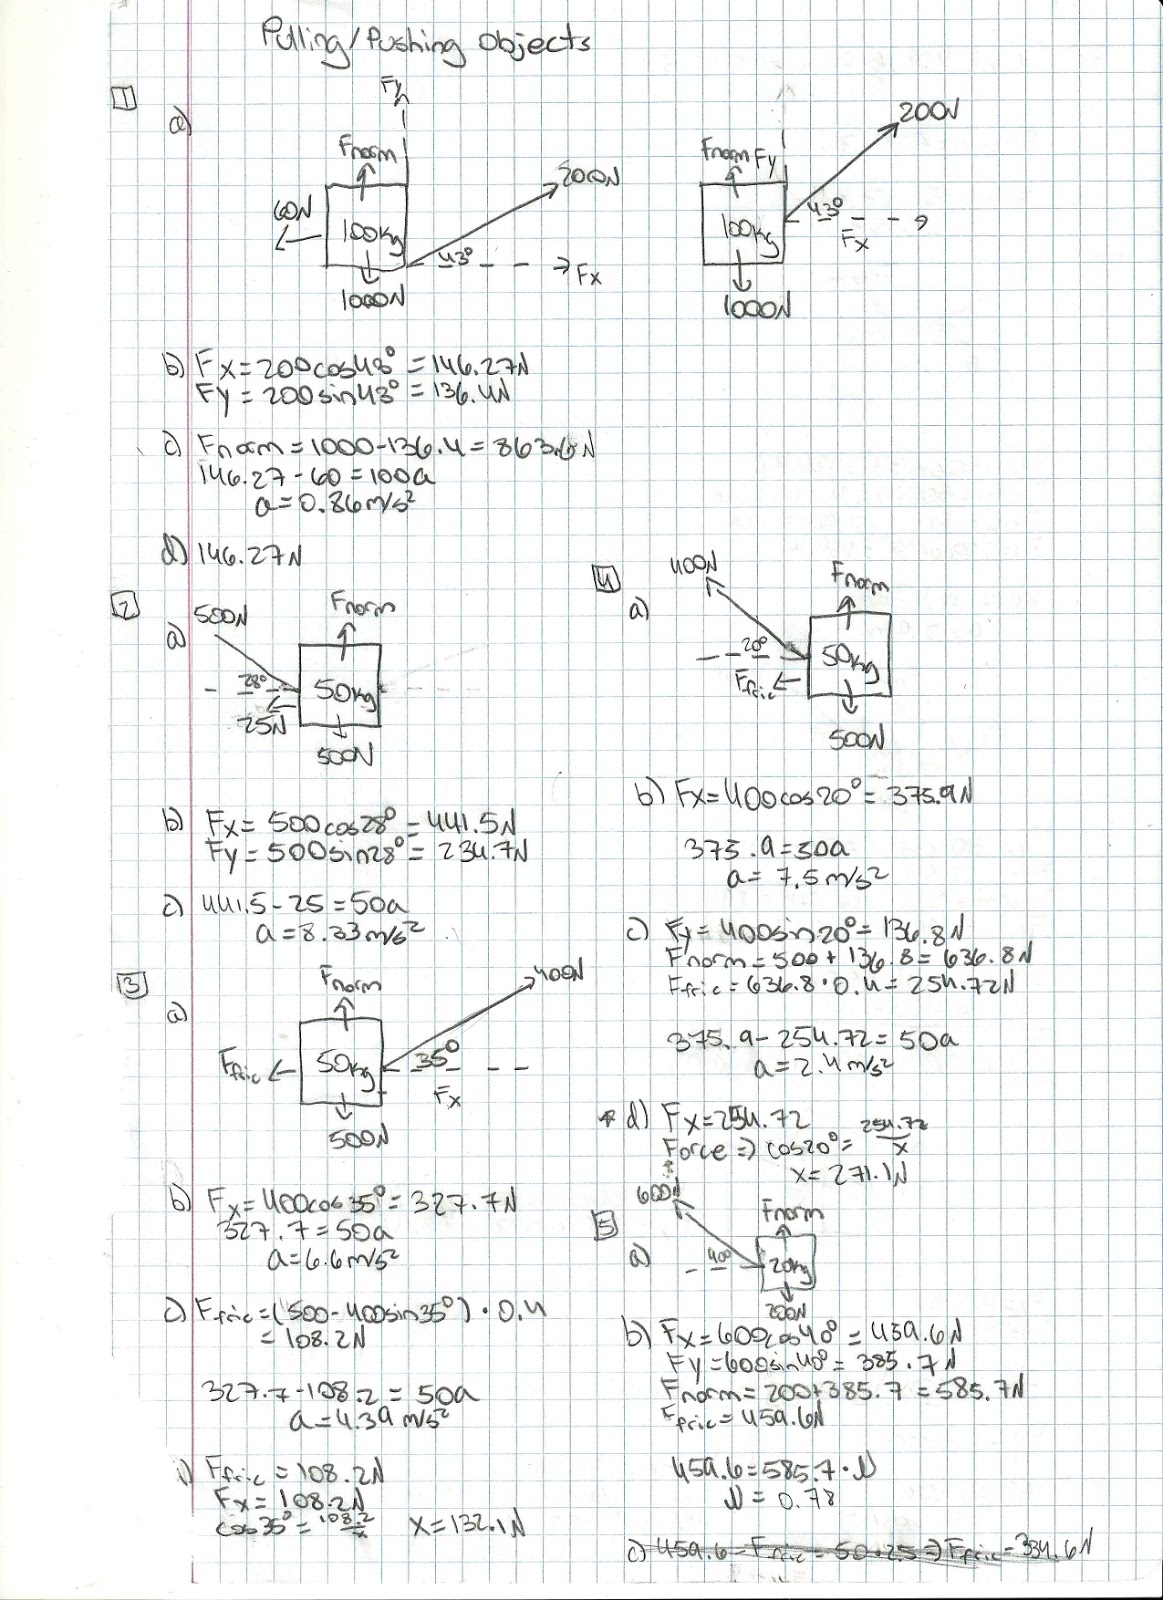 Pulling/Pushing Objects
1
a)
Fy
Fnorm
60N
200N
100kg
43°
Fx
1000N
Fnorm Fy
200N
100kg
43°
Fx
1000N
b) Fx = 200cos43° = 146.27N
Fy = 200sin43° = 136.4N
c) Fnorm = 1000-136.4 = 863.6N
146.27 - 60 = 100a
a = 0.86m/s²
d) 146.27N
2
a)
500N
Fnorm
28°
50kg
25N
500N
b) Fx = 500cos28° = 441.5N
Fy = 500sin28° = 234.7N
c) 441.5 - 25 = 50a
a = 8.33m/s²
3
a)
Fnorm
400N
Ffric
50kg
35°
Fx
500N
b) Fx = 400cos35° = 327.7N
327.7 = 50a
a = 6.6m/s²
c) Ffric = (500-400sin35°) · 0.4
= 108.2N
327.7 - 108.2 = 50a
a = 4.39 m/s²
Ffric = 108.2N
Fx = 108.2N
cos35° = 108.2/x x = 132.1N
4
a)
400N
Fnorm
20°
50kg
Ffric
500N
b) Fx = 400cos20° = 375.9N
375.9 = 50a
a = 7.5m/s²
c) Fy = 400sin20° = 136.8N
Fnorm = 500 + 136.8 = 636.8N
Ffric = 636.8 · 0.4 = 254.72N
375.9 - 254.72 = 50a
a = 2.4m/s²
* d) Fx = 254.72
Force => cos20° = 254.72/x
x = 271.1N
5
a)
600N
Fnorm
40°
20kg
200N
b) Fx = 600cos40° = 459.6N
Fy = 600sin40° = 385.7N
Fnorm = 200+385.7 = 585.7N
Ffric = 459.6N
459.6 = 585.7 · µ
µ = 0.78
c) 459.6 - Ffric = 50 · 2.5 => Ffric = 334.6N